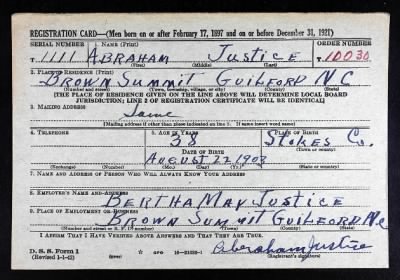 REGISTRATION CARD—(Men born on or after February 17, 1897 and on or before December 31, 1921)
SERIAL NUMBER 1. NAME (Print) ORDER NUMBER
T 1111 ABRAHAM Justice T 10030
(First) (Middle) (Last)
2. PLACE OF RESIDENCE (Print)
BROWN SUMMIT GUILFORD N.C
(Number and street) (Town, township, village, or city) (County) (State)
[THE PLACE OF RESIDENCE GIVEN ON THE LINE ABOVE WILL DETERMINE LOCAL BOARD
JURISDICTION; LINE 2 OF REGISTRATION CERTIFICATE WILL BE IDENTICAL]
3. MAILING ADDRESS
Same
[Mailing address if other than place indicated on line 2. If same insert word same]
4. TELEPHONE 5. AGE IN YEARS 6. PLACE OF BIRTH
38 STOKES Co.
DATE OF BIRTH (Town or county)
AUGUST 22 1903
(Exchange) (Number) (Mo.) (Day) (Yr.) (State or country)
7. NAME AND ADDRESS OF PERSON WHO WILL ALWAYS KNOW YOUR ADDRESS
8. EMPLOYER'S NAME AND ADDRESS
BERTHA MAY JUSTICE
9. PLACE OF EMPLOYMENT OR BUSINESS
BROWN SUMMIT GUILFORD N.C
(Number and street or R. F. D. number) (Town) (County) (State)
I AFFIRM THAT I HAVE VERIFIED ABOVE ANSWERS AND THAT THEY ARE TRUE.
D. S. S. Form 1
(Revised 1-1-42) (over)
Abraham Justice
(Registrant's signature)